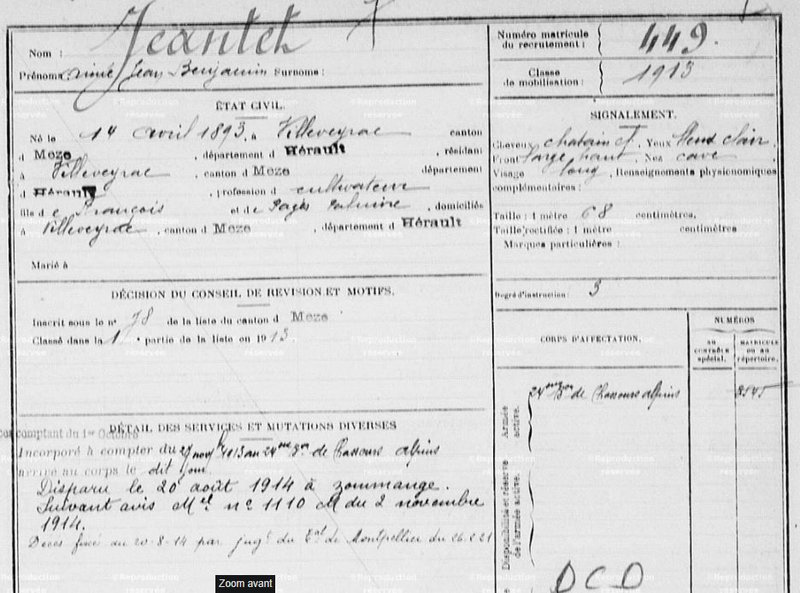 Nom : Jeantet
Prénoms : Aimé Jean Benjamin Surnoms :
Numéro matricule du recrutement : 449.
Classe de mobilisation : 1913
ÉTAT CIVIL.
Né le 14 avril 1893, à Villeveyrac canton
d Mèze, département d Hérault, résidant
à Villeveyrac, canton d Mèze département
d Hérault, profession d cultivateur
fils de François et de Pagès Palmire domiciliés
à Villeveyrac, canton d Mèze, département d Hérault
Marié à
SIGNALEMENT.
Cheveux chatain Yeux bleus clair
Front large haut. Nez cave
Visage long. Renseignements physionomiques
complémentaires :
Taille : 1 mètre 68 centimètres.
Taille rectifiée : 1 mètre centimètres
Marques particulières :
Degré d'instruction : 3
DÉCISION DU CONSEIL DE REVISION ET MOTIFS.
Inscrit sous le n° 78 de la liste du canton d Mèze
Classé dans la 1 partie de la liste en 1913
CORPS D'AFFECTATION.
NUMÉROS
AU CONTRÔLE spécial.
MATRICULE OU AU répertoire.
Armée active.
24me Bon de Chasseurs alpins 3545
Disponibilité et réserve de l'armée active.
DCD
DÉTAIL DES SERVICES ET MUTATIONS DIVERSES
comptant du 1er Octobre
Incorporé à compter du 27 nov 1913 au 24me Bon de Chasseurs alpins
arrivé au corps le dit jour.
Disparu le 20 août 1914 à Zommange.
Suivant avis Mel n° 1110 M du 2 novembre
1914.
Décès fixé au 20-8-14 par jugt du Tal de Montpellier du 26.2.21
Zoom avant